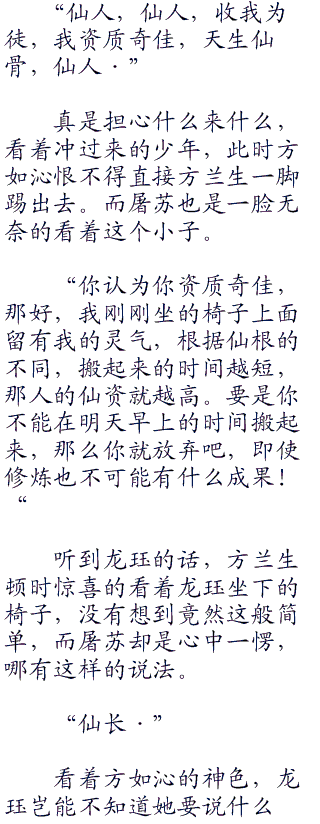 “仙人，仙人，收我为
徒，我资质奇佳，天生仙
骨，仙人·”
真是担心什么来什么，
看着冲过来的少年，此时方
如沁恨不得直接方兰生一脚
踢出去。而屠苏也是一脸无
奈的看着这个小子。
“你认为你资质奇佳，
那好，我刚刚坐的椅子上面
留有我的灵气，根据仙根的
不同，搬起来的时间越短，
那人的仙资就越高。要是你
不能在明天早上的时间搬起
来，那么你就放弃吧，即使
修炼也不可能有什么成果！
“
听到龙珏的话，方兰生
顿时惊喜的看着龙珏坐下的
椅子，没有想到竟然这般简
单，而屠苏却是心中一愣，
哪有这样的说法。
“仙长·”
看着方如沁的神色，龙
珏岂能不知道她要说什么